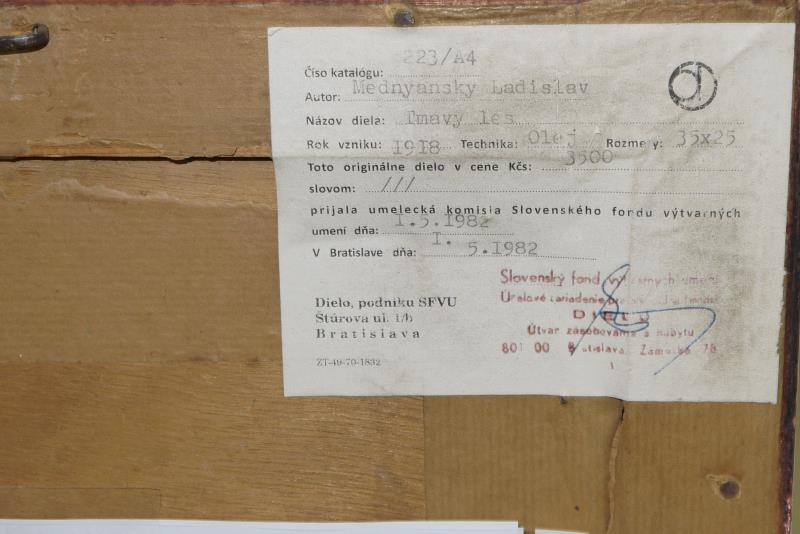 Číso katalógu: 223/A4
Autor: Mednyansky Ladislav
Názov diela: Tmavý les
Rok vzniku: 1918 Technika: Olej Rozmery: 35x25
Toto originálne dielo v cene Kčs: 3500
slovom: ///
prijala umelecká komisia Slovenského fordu výtvarných
umení dňa: 1.5.1982
V Bratislave dňa: I. 5.1982
Dielo, podniku SFVU
Štúrova ul. 1/b
Bratislava
ZT-49-70-1832
Slovenský fond výtvarných umení
Účelové zariadenie
DIELO
Útvar zásobovania a odbytu
801 00 Bratislava, Zámocká 78
1